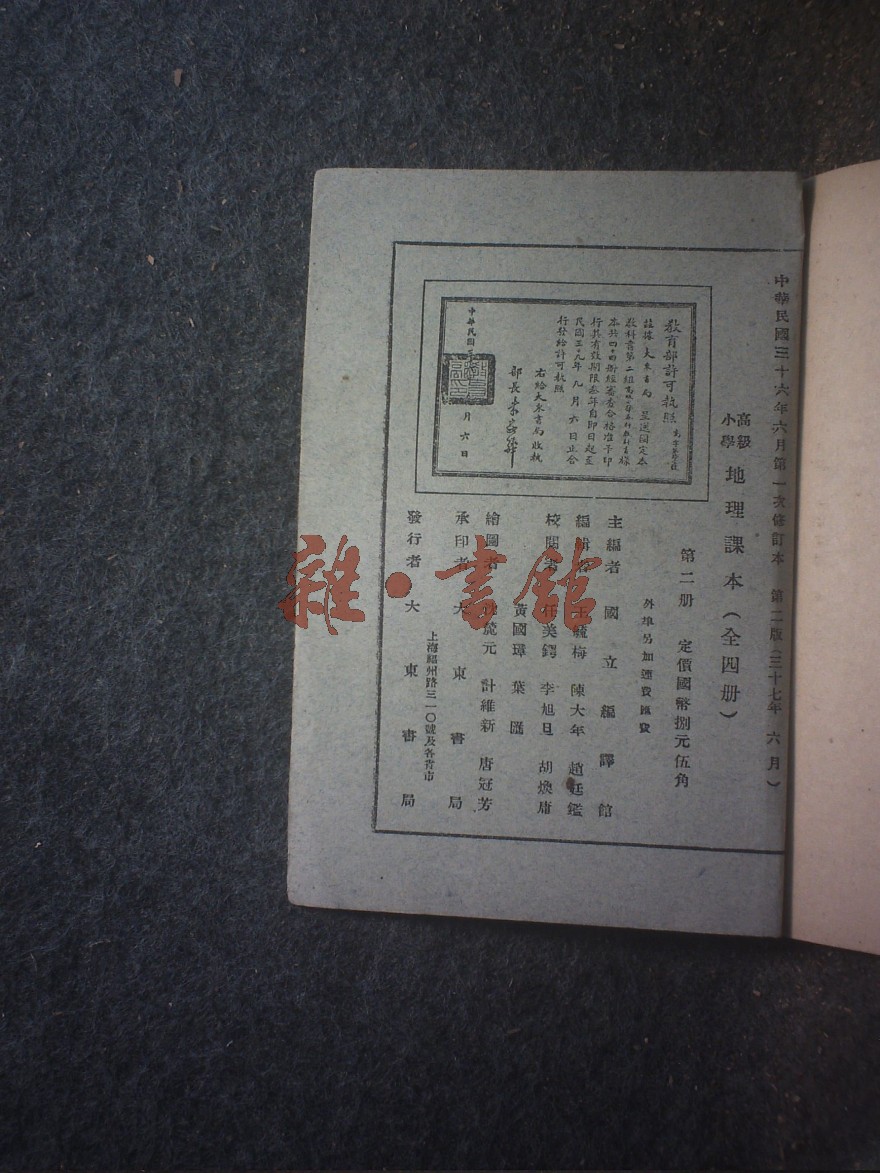 中華民國三十六年六月第一次修訂本 第二版(三十七年 六月)
高級小學 地理課本(全四册)
第二册 定價國幣捌元伍角
外埠另加運費匯費
主編者 國立編譯館
編輯者 王毓梅 陳大年 趙廷鑑
校閱者 任美鍔 李旭旦 胡煥庸
黃國璋 葉匯
繪圖者 元 計維新 唐冠芳
承印者 大東書局
上海福州路三一〇號及各省市
發行者 大東書局
教育部許可執照
茲據大東書局呈送國定本
教科書第二組
本共四十四册經審查合格准予印
行其有效期限叁年自即日起至
民國三十九年九月六日止合
行發給許可執照
右給大東書局收執
部長朱家驊
中華民國 月六日
雜·書館